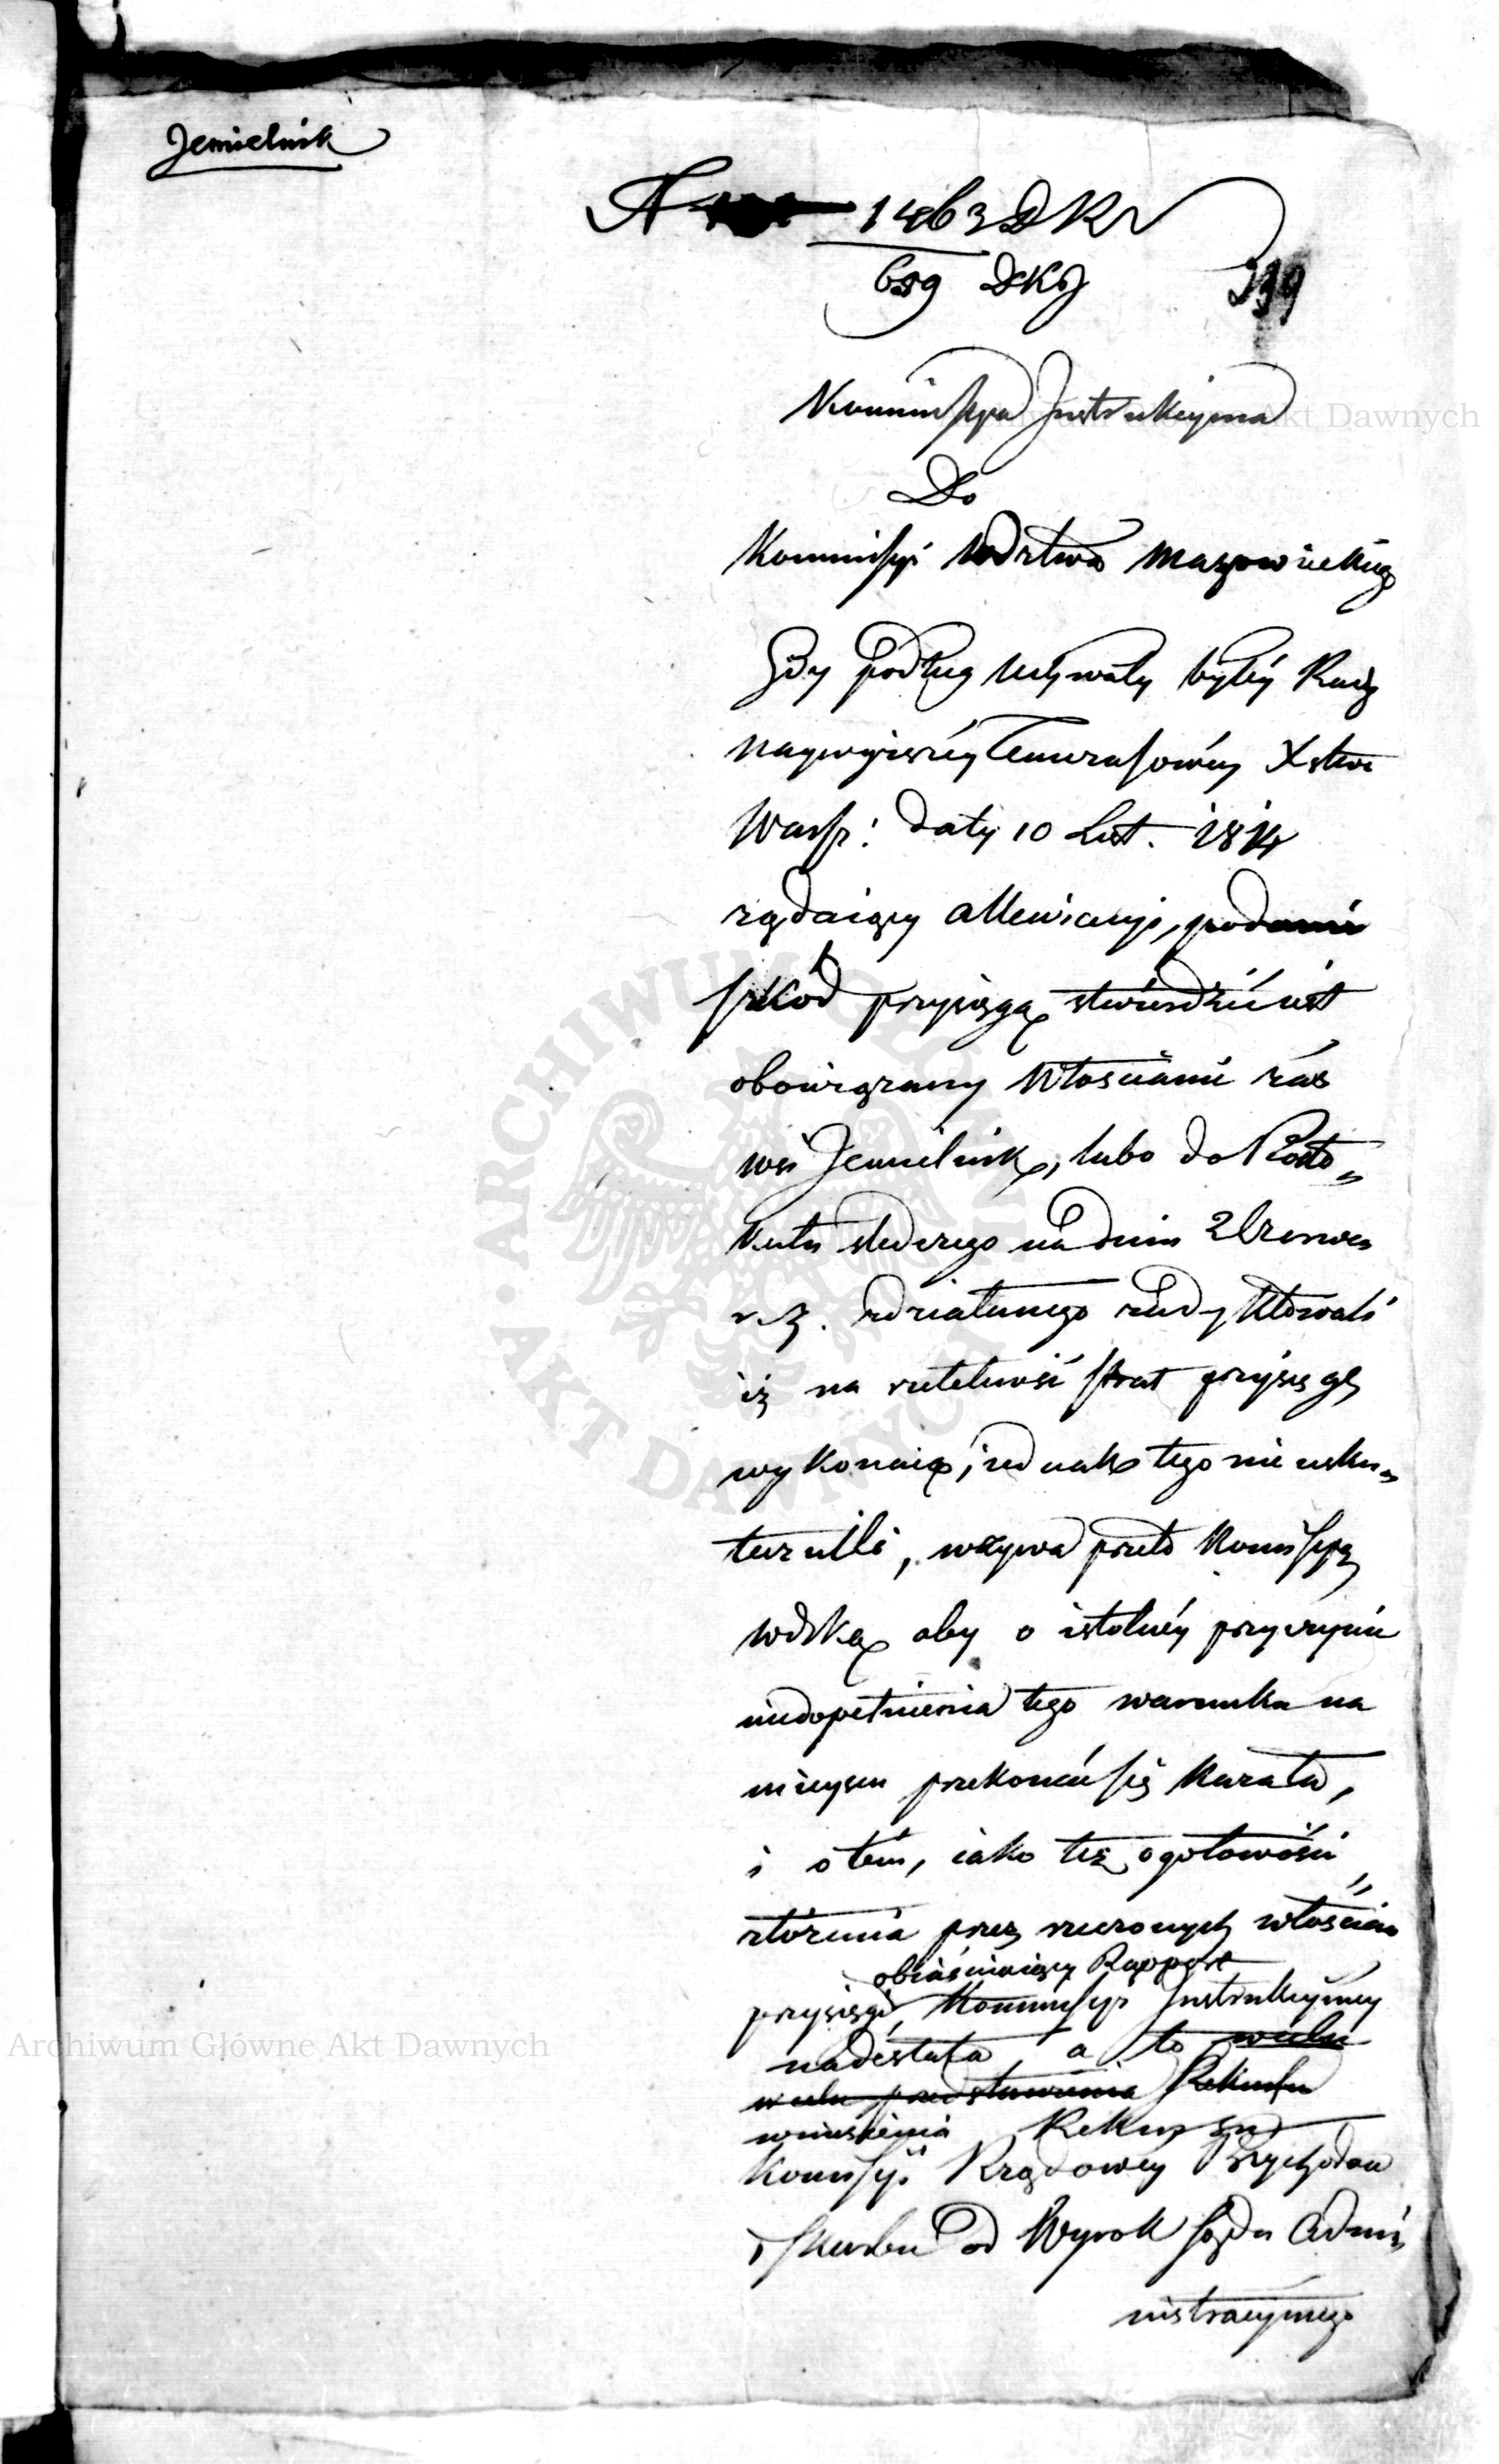 Jemielnik
N 1463 DKN
659 DKJ
239
Kommissya Instrukcyjna
Do
Kommissyi Wdztwa Mazowieckiego
Gdy podług Uchwały byłéy Rady
naywyższéy Tymczasowéy Xstwa
Warsz: daty 10 Lut. 1814
żądaiący allewiacyi, podanie
szkód przysięgą stwierdzić iest
obowiązany Włościanie zaś
wsi Jemielnik, lubo do Proto„
kułu śledczego na dniu 2 Czerwca
r. z. zdziałanego zadyktowali
iż na rzetelność strat przysięgę
wykonaią, iednak tego nie usku„
tecznili, wzywa przeto Kommissyą
Wdzką aby o istotnéy przyczynie
niedopełnienia tego warunku na
mieyscu przekonać się kazała,
i o tém, iako też o gotowości
złożenia przez rzeczonych włościan
obiaśniaiący Rapport
przysięgi, Kommissyi Instrukcyinéy
nadesłała, a to w celu
w celu przedstawienia Rekursu
wniesienia Rekursu
Komissyi Rządowéy Przychodów
i Skarbu od Wyroku Sądu Admi„
nistracyinego
Archiwum Główne Akt Dawnych
ARCHIWUM GŁÓWNE AKT DAWNYCH
Archiwum Główne Akt Dawnych